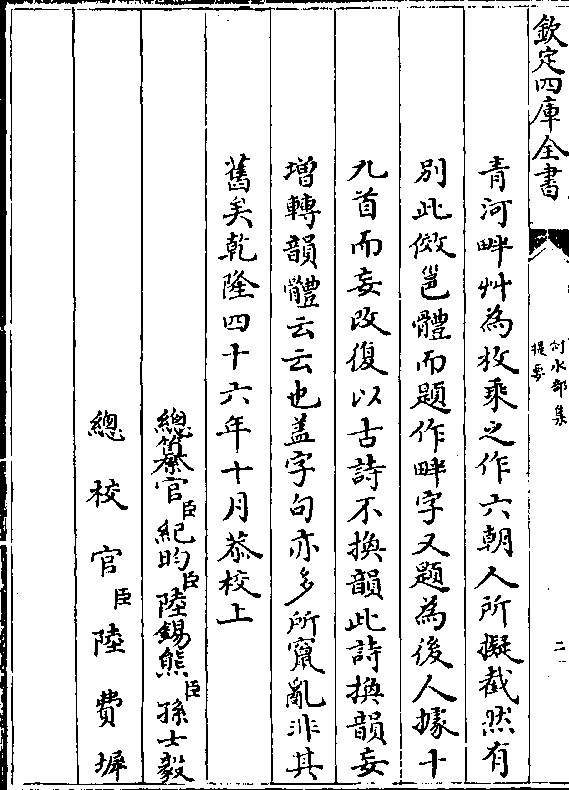 欽定四庫全書
何水部集
提要
二
青河畔艸為枚乘之作六朝人所擬截然有
別此倣邕體而題作畔字又題為後人據十
九首而妄改復以古詩不換韻此詩換韻妄
增轉韻體云云也盖字句亦多所竄亂非其
舊矣乾隆四十六年十月恭校上
總纂官臣紀昀臣陸錫熊臣孫士毅
總校官臣陸費墀